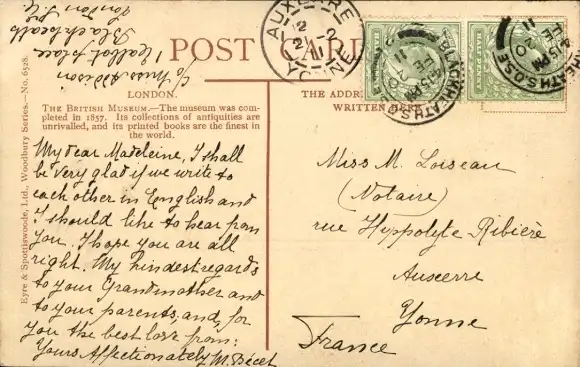 c/o Miss Addison
1 Talbot place
Blackheath
London S.E.
POST CARD
AUXERRE
YONNE
BLACKHEATH S.O.S.E.
HALFPENNY
HALFPENNY
4.15 PM
LONDON.
THE BRITISH MUSEUM.—The museum was com-
pleted in 1857. Its collections of antiquities are
unrivalled, and its printed books are the finest in
the world.
THE ADDR
WRITTEN HERE
Eyre & Spottiswoode, Ltd., Woodbury Series.—No. 6528.
My dear Madeleine, I shall
be very glad if we write to
each other in English and
I should like to hear from
you. I hope you are all
right. My kindest regards
to your Grandmother and
to your parents, and, for
you the best love from:
Yours Affectionately M. Décet
Miss M. Loiseau
(Notaire)
rue Hippolyte Ribière
Auxerre
Yonne
France